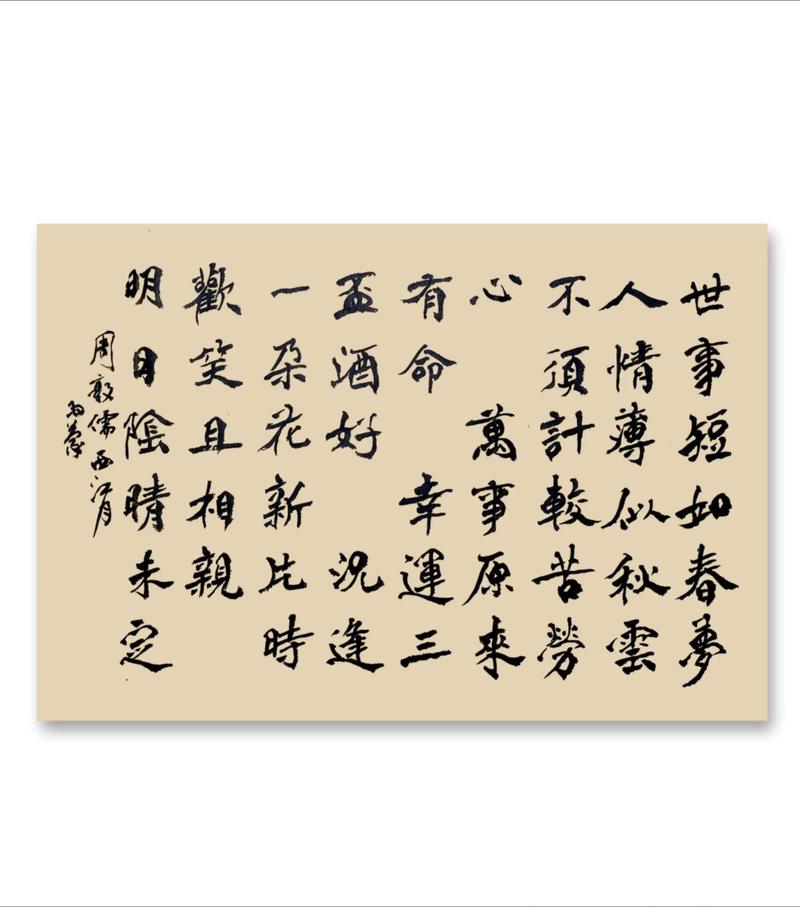 世事短如春夢
人情薄似秋雲
不須計較苦勞
心 萬事原來
有命 幸運三
盃酒好 況逢
一朵花新 片時
歡笑且相親
明日陰晴未定
周敦儒西江月